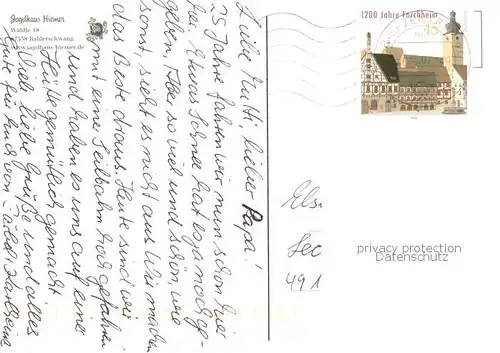 Jagdhaus Hiemer
Wäldle 18
87538 Balderschwang
www.jagdhaus-hiemer.de
Liebe Mutti, lieber Papa!
25 Jahre fahren wir nun schon hier
her. Etwas Schnee hat es ja noch ge-
geben, aber so viel und schön, wie
sonst, sieht es nicht aus. Wir machen
das Beste draus. Heute sind wir
mit eine Seilbahn hochgefahren
und haben es uns auf einer
Hütte gemütlich gemacht.
Viele liebe Grüße und alles
Gute für Euch von
1200 Jahre Forchheim
45
Elsn
Sec
491
privacy protection
Datenschutz